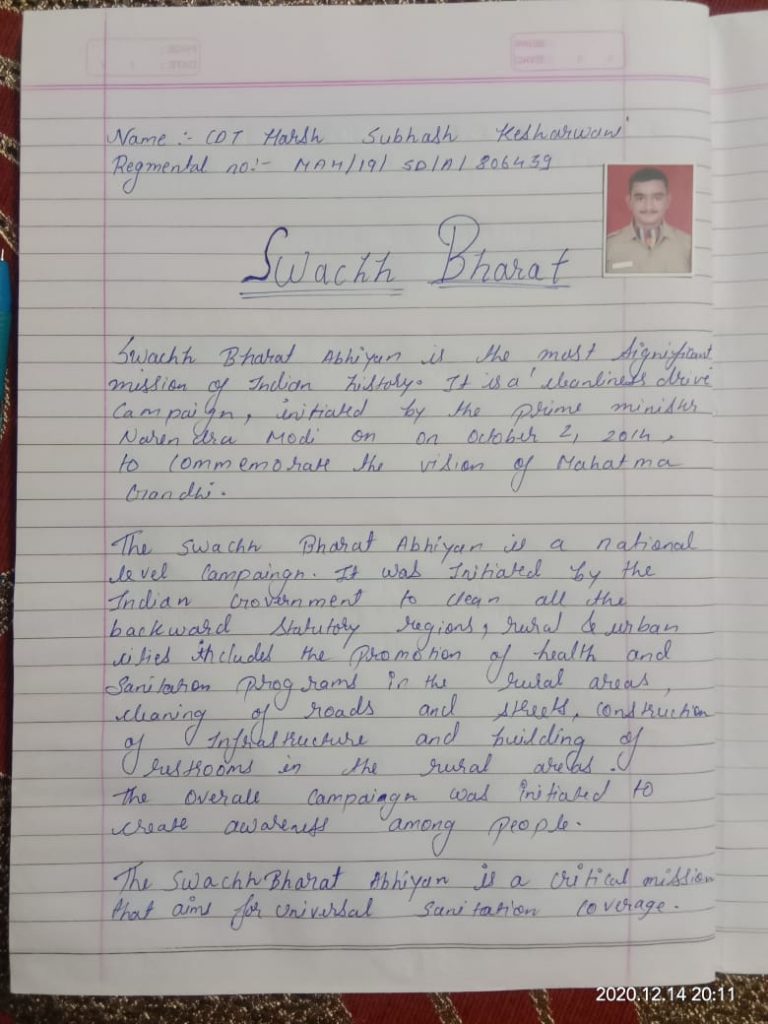 Name :- CDT Harsh Subhash Kesharwani
Regmental no:- MAH/19/SD/A/806439
Swachh Bharat
Swachh Bharat Abhiyan is the most significant
mission of Indian history. It is a cleanliness drive
campaign, initiated by the prime minister
Narendra Modi on on October 2, 2014,
to commemorate the vision of Mahatma
Gandhi.
The Swachh Bharat Abhiyan is a national
level campaingn. It was Initiated by the
Indian Government to clean all the
backward statutory regions, rural & urban
cities includes the promotion of health and
sanitation programs in the rural areas,
cleaning of roads and streets, construction
of infrastructure and building of
restrooms in the rural areas.
The overall campaiagn was initiated to
create awareness among people.
The Swachh Bharat Abhiyan is a critical mission
that aims for universal sanitation coverage.
2020.12.14 20:11